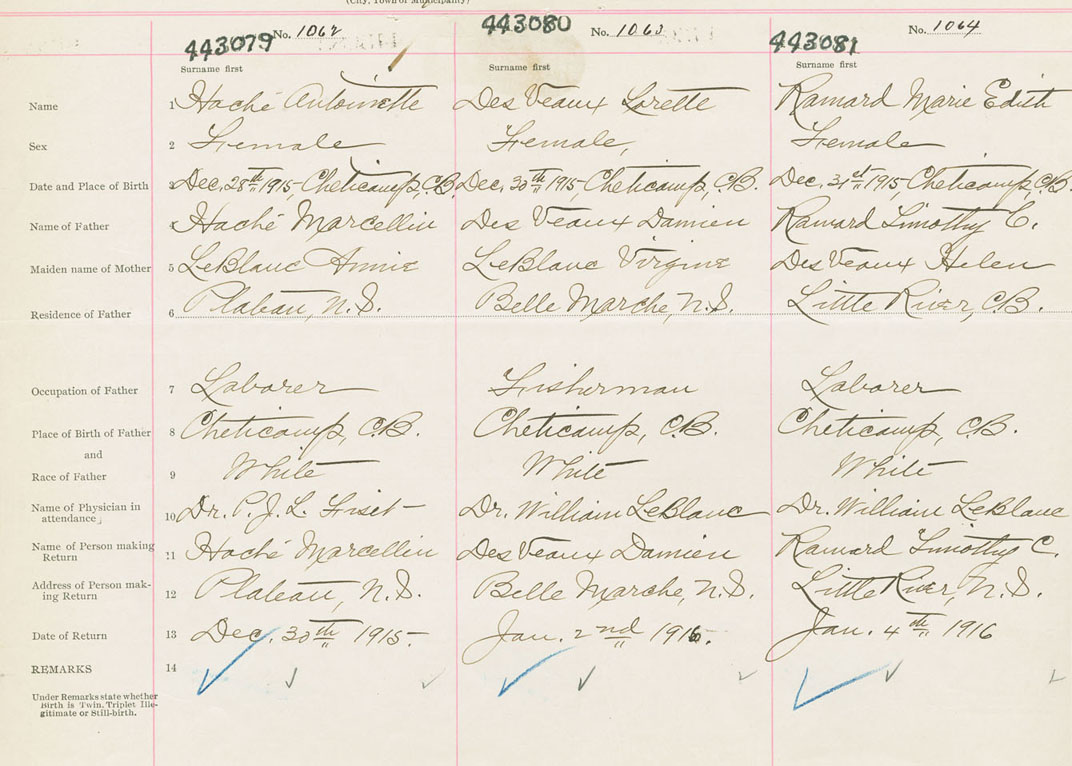 (City, Town or Municipality)
443079 No. 1062 443080 No. 1063 443081 No. 1064
Surname first Surname first Surname first
Name 1 Haché Antoinette Des Veaux Lorette Ramard Marie Edith
Sex 2 Female Female, Female
Date and Place of Birth 3 Dec. 28th 1915 - Cheticamp, C.B. Dec. 30th 1915 - Cheticamp, C.B. Dec. 31st 1915 - Cheticamp, C.B.
Name of Father 4 Haché Marcellin Des Veaux Damien Ramard Timothy C.
Maiden name of Mother 5 LeBlanc Annie LeBlanc Virginie Des Veaux Helen
Residence of Father 6 Plateau, N.S. Belle Marche, N.S. Little River, C.B.
Occupation of Father 7 Laborer Fisherman Laborer
Place of Birth of Father 8 Cheticamp, C.B. Cheticamp, C.B. Cheticamp, C.B.
and
Race of Father 9 White White White
Name of Physician in
attendance 10 Dr. P. J. L. Fiset Dr. William LeBlanc Dr. William LeBlanc
Name of Person making
Return 11 Haché Marcellin Des Veaux Damien Ramard Timothy C.
Address of Person mak-
ing Return 12 Plateau, N.S. Belle Marche, N.S. Little River, N.S.
Date of Return 13 Dec. 30th 1915- Jan. 2nd 1916. Jan. 4th 1916
REMARKS 14
Under Remarks state whether
Birth is Twin, Triplet Ille-
gitimate or Still-birth.